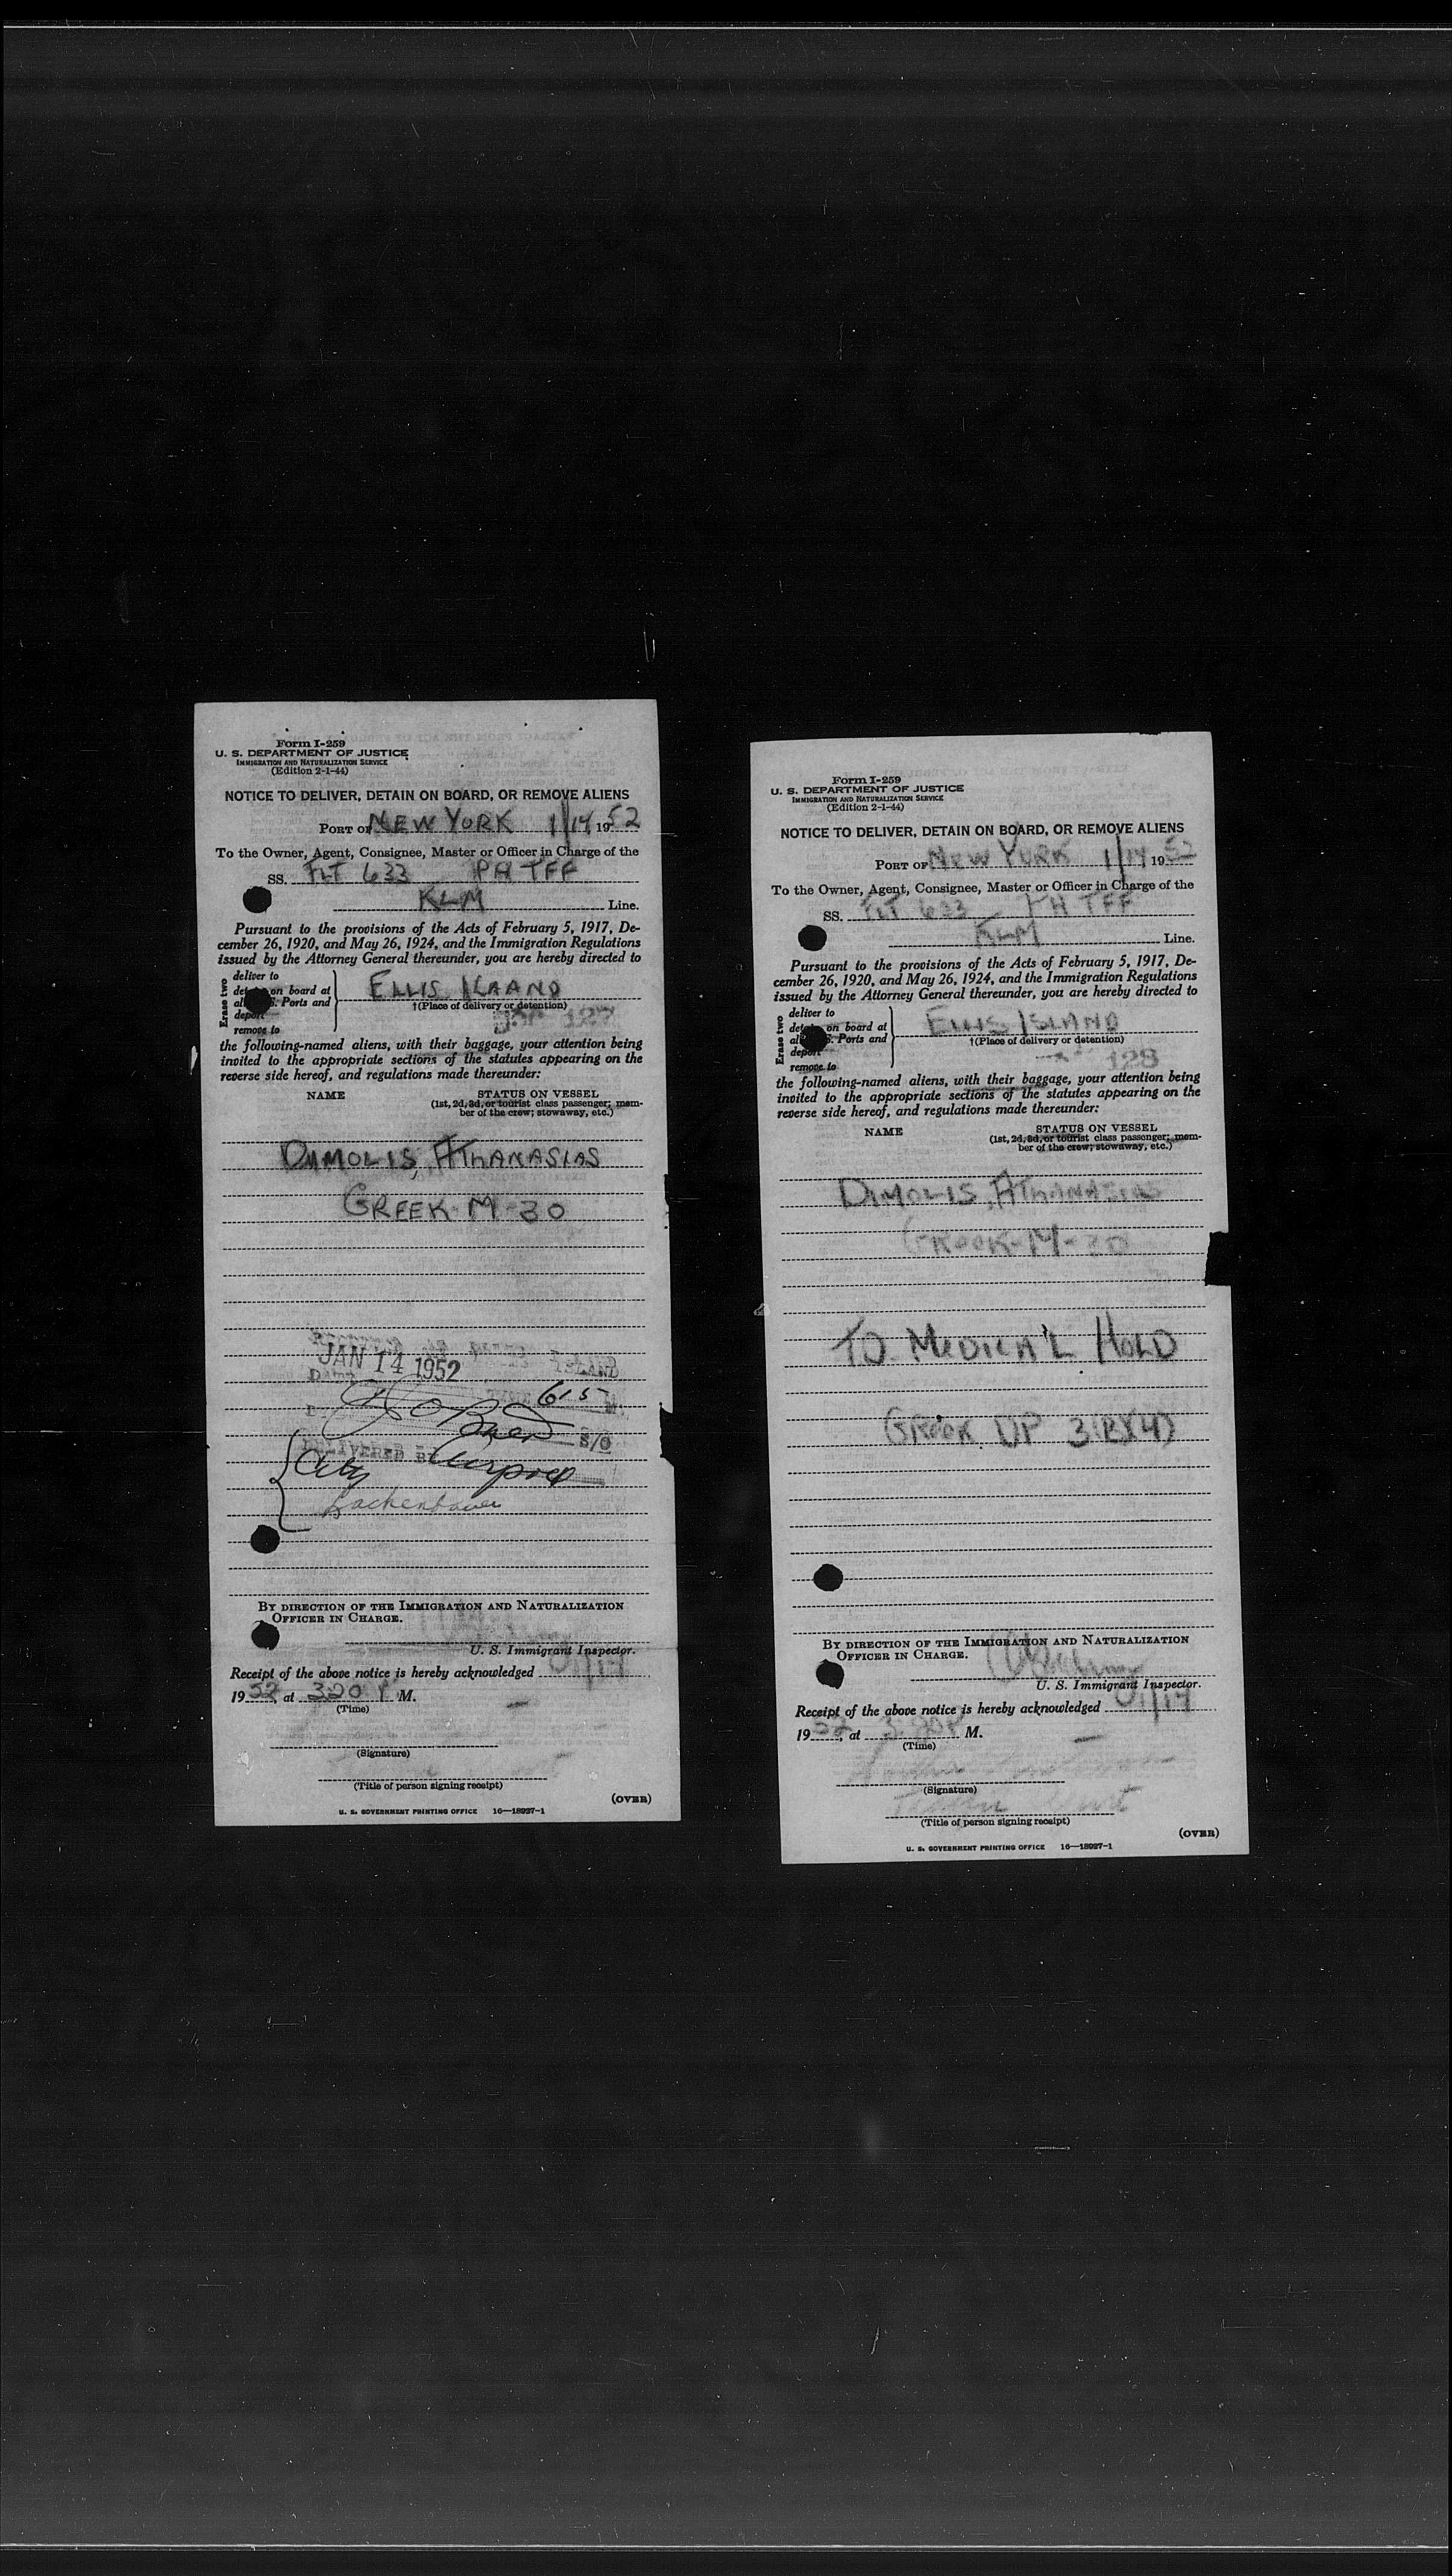 Form I-259
U. S. DEPARTMENT OF JUSTICE
IMMIGRATION AND NATURALIZATION SERVICE
(Edition 2-1-44)
NOTICE TO DELIVER, DETAIN ON BOARD, OR REMOVE ALIENS
PORT OF NEW YORK 1/14 1952
To the Owner, Agent, Consignee, Master or Officer in Charge of the
SS. FLT 633 PH TFF
KLM Line.
Pursuant to the provisions of the Acts of February 5, 1917, De-
cember 26, 1920, and May 26, 1924, and the Immigration Regulations
issued by the Attorney General thereunder, you are hereby directed to
Erase two
deliver to
on board at
S. Ports and
deport
remove to
ELLIS ISLAND
†(Place of delivery or detention)
127
the following-named aliens, with their baggage, your attention being
invited to the appropriate sections of the statutes appearing on the
reverse side hereof, and regulations made thereunder:
NAME STATUS ON VESSEL
(1st, 2d, 3d, or tourist class passenger; mem-
ber of the crew; stowaway, etc.)
DIMOLIS, ATHANASIAS
GREEK-M-30
JAN 14 1952
615
S/O
DELIVERED
City Airport
BY DIRECTION OF THE IMMIGRATION AND NATURALIZATION
OFFICER IN CHARGE.
U. S. Immigrant Inspector.
Receipt of the above notice is hereby acknowledged 01/14
1952, at 320 P M.
(Time)
(Signature)
(Title of person signing receipt)
(OVER)
U. S. GOVERNMENT PRINTING OFFICE 16—18927-1
Form I-259
U. S. DEPARTMENT OF JUSTICE
IMMIGRATION AND NATURALIZATION SERVICE
(Edition 2-1-44)
NOTICE TO DELIVER, DETAIN ON BOARD, OR REMOVE ALIENS
PORT OF NEW YORK 1/14 1952
To the Owner, Agent, Consignee, Master or Officer in Charge of the
SS. FLT 633 PH TFF
KLM Line.
Pursuant to the provisions of the Acts of February 5, 1917, De-
cember 26, 1920, and May 26, 1924, and the Immigration Regulations
issued by the Attorney General thereunder, you are hereby directed to
Erase two
deliver to
on board at
S. Ports and
deport
remove to
ELLIS ISLAND
†(Place of delivery or detention)
128
the following-named aliens, with their baggage, your attention being
invited to the appropriate sections of the statutes appearing on the
reverse side hereof, and regulations made thereunder:
NAME STATUS ON VESSEL
(1st, 2d, 3d, or tourist class passenger; mem-
ber of the crew; stowaway, etc.)
DIMOLIS, ATHANASIAS
GREEK-M-30
TO MEDICA'L HOLD
GREEK DP 3(B)(4)
BY DIRECTION OF THE IMMIGRATION AND NATURALIZATION
OFFICER IN CHARGE.
U. S. Immigrant Inspector.
Receipt of the above notice is hereby acknowledged 01/14
1952, at 3:20P M.
(Time)
(Signature)
(Title of person signing receipt)
(OVER)
U. S. GOVERNMENT PRINTING OFFICE 16—18927-1